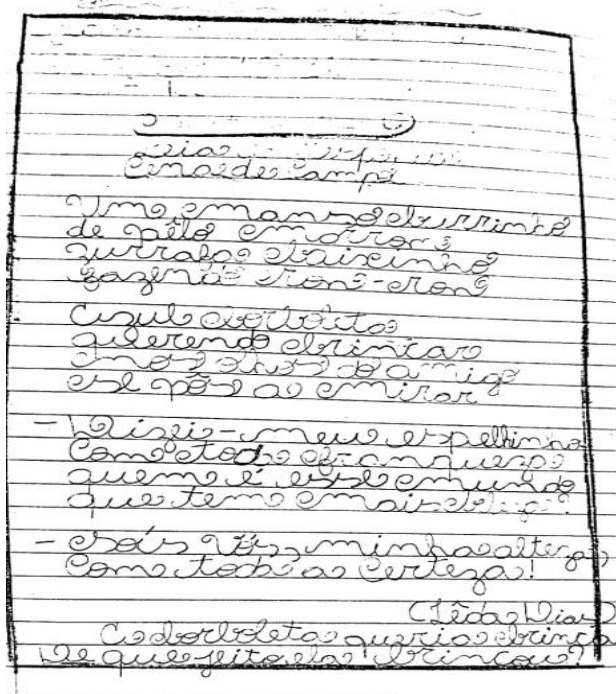 Cena de campo
Um manso burrinho
de pêlo marrom
zurrava baixinho
fazendo ron-ron
Azul borbolita
querendo brincar
nos olhos do amigo
se pôs a mirar
- Dizei-meu espelhinho
Com toda franqueza
quem é esse mundo
que tem mais beleza?
- Sois vós, minha alteza,
Com toda a certeza!
(Lêda Dias)
A borboleta queria brinca
De que jeito ela brincou?